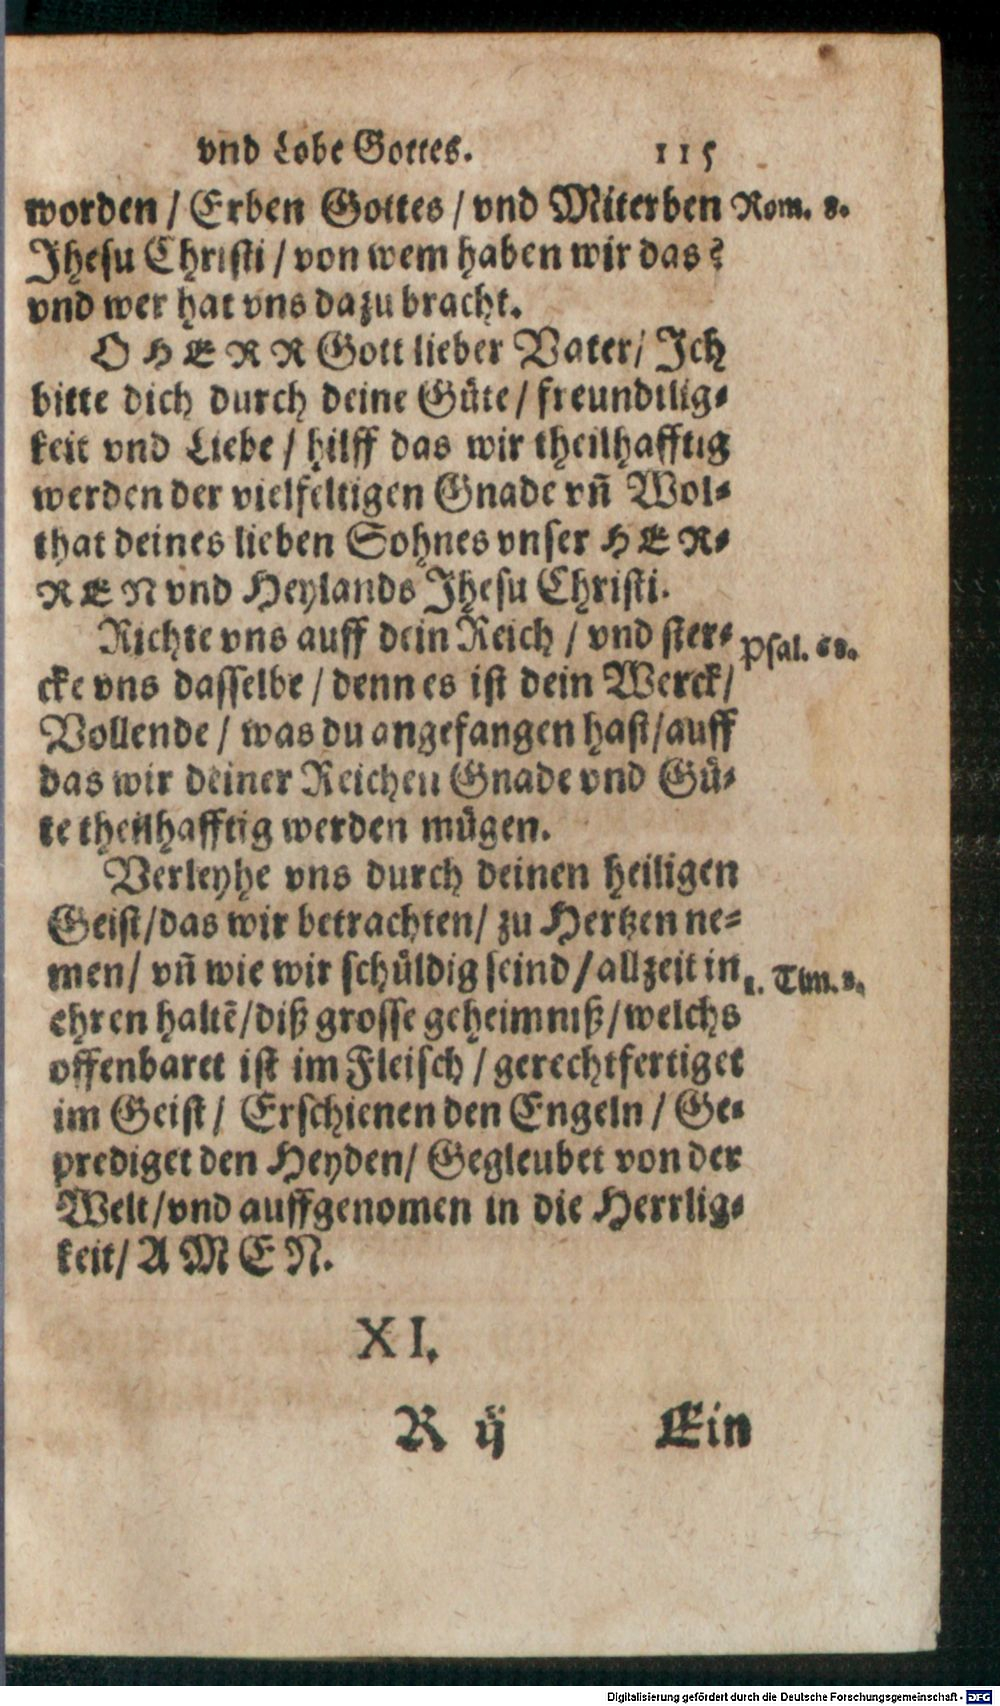 vnd Lobe Gottes. 115
worden / Erben Gottes / vnd Miterben Rom. 8.
Jhesu Christi / von wem haben wir das?
vnd wer hat vns dazu bracht.
O HERR Gott lieber Vater / Ich
bitte dich durch deine Güte / freundtlig-
keit vnd Liebe / hilff das wir theilhafftig
werden der vielfeltigen Gnade vñ Wol-
that deines lieben Sohnes vnser HER-
REN vnd Heylands Jhesu Christi.
Richte vns auff dein Reich / vnd ster- Psal. 68.
cke vns dasselbe / denn es ist dein Werck /
Vollende / was du angefangen hast / auff
das wir deiner Reichen Gnade vnd Gü-
te theilhafftig werden mügen.
Verleyhe vns durch deinen heiligen
Geist / das wir betrachten / zu Hertzen ne-
men / vñ wie wir schüldig seind / allzeit in 1. Tim. 3.
ehren haltẽ / diß grosse geheimniß / welchs
offenbaret ist im Fleisch / gerechtfertiget
im Geist / Erschienen den Engeln / Ge-
prediget den Heyden / Gegleubet von der
Welt / vnd auffgenomen in die Herrlig-
keit / AMEN.
XI.
R ij Ein
Digitalisierung gefördert durch die Deutsche Forschungsgemeinschaft - DFG